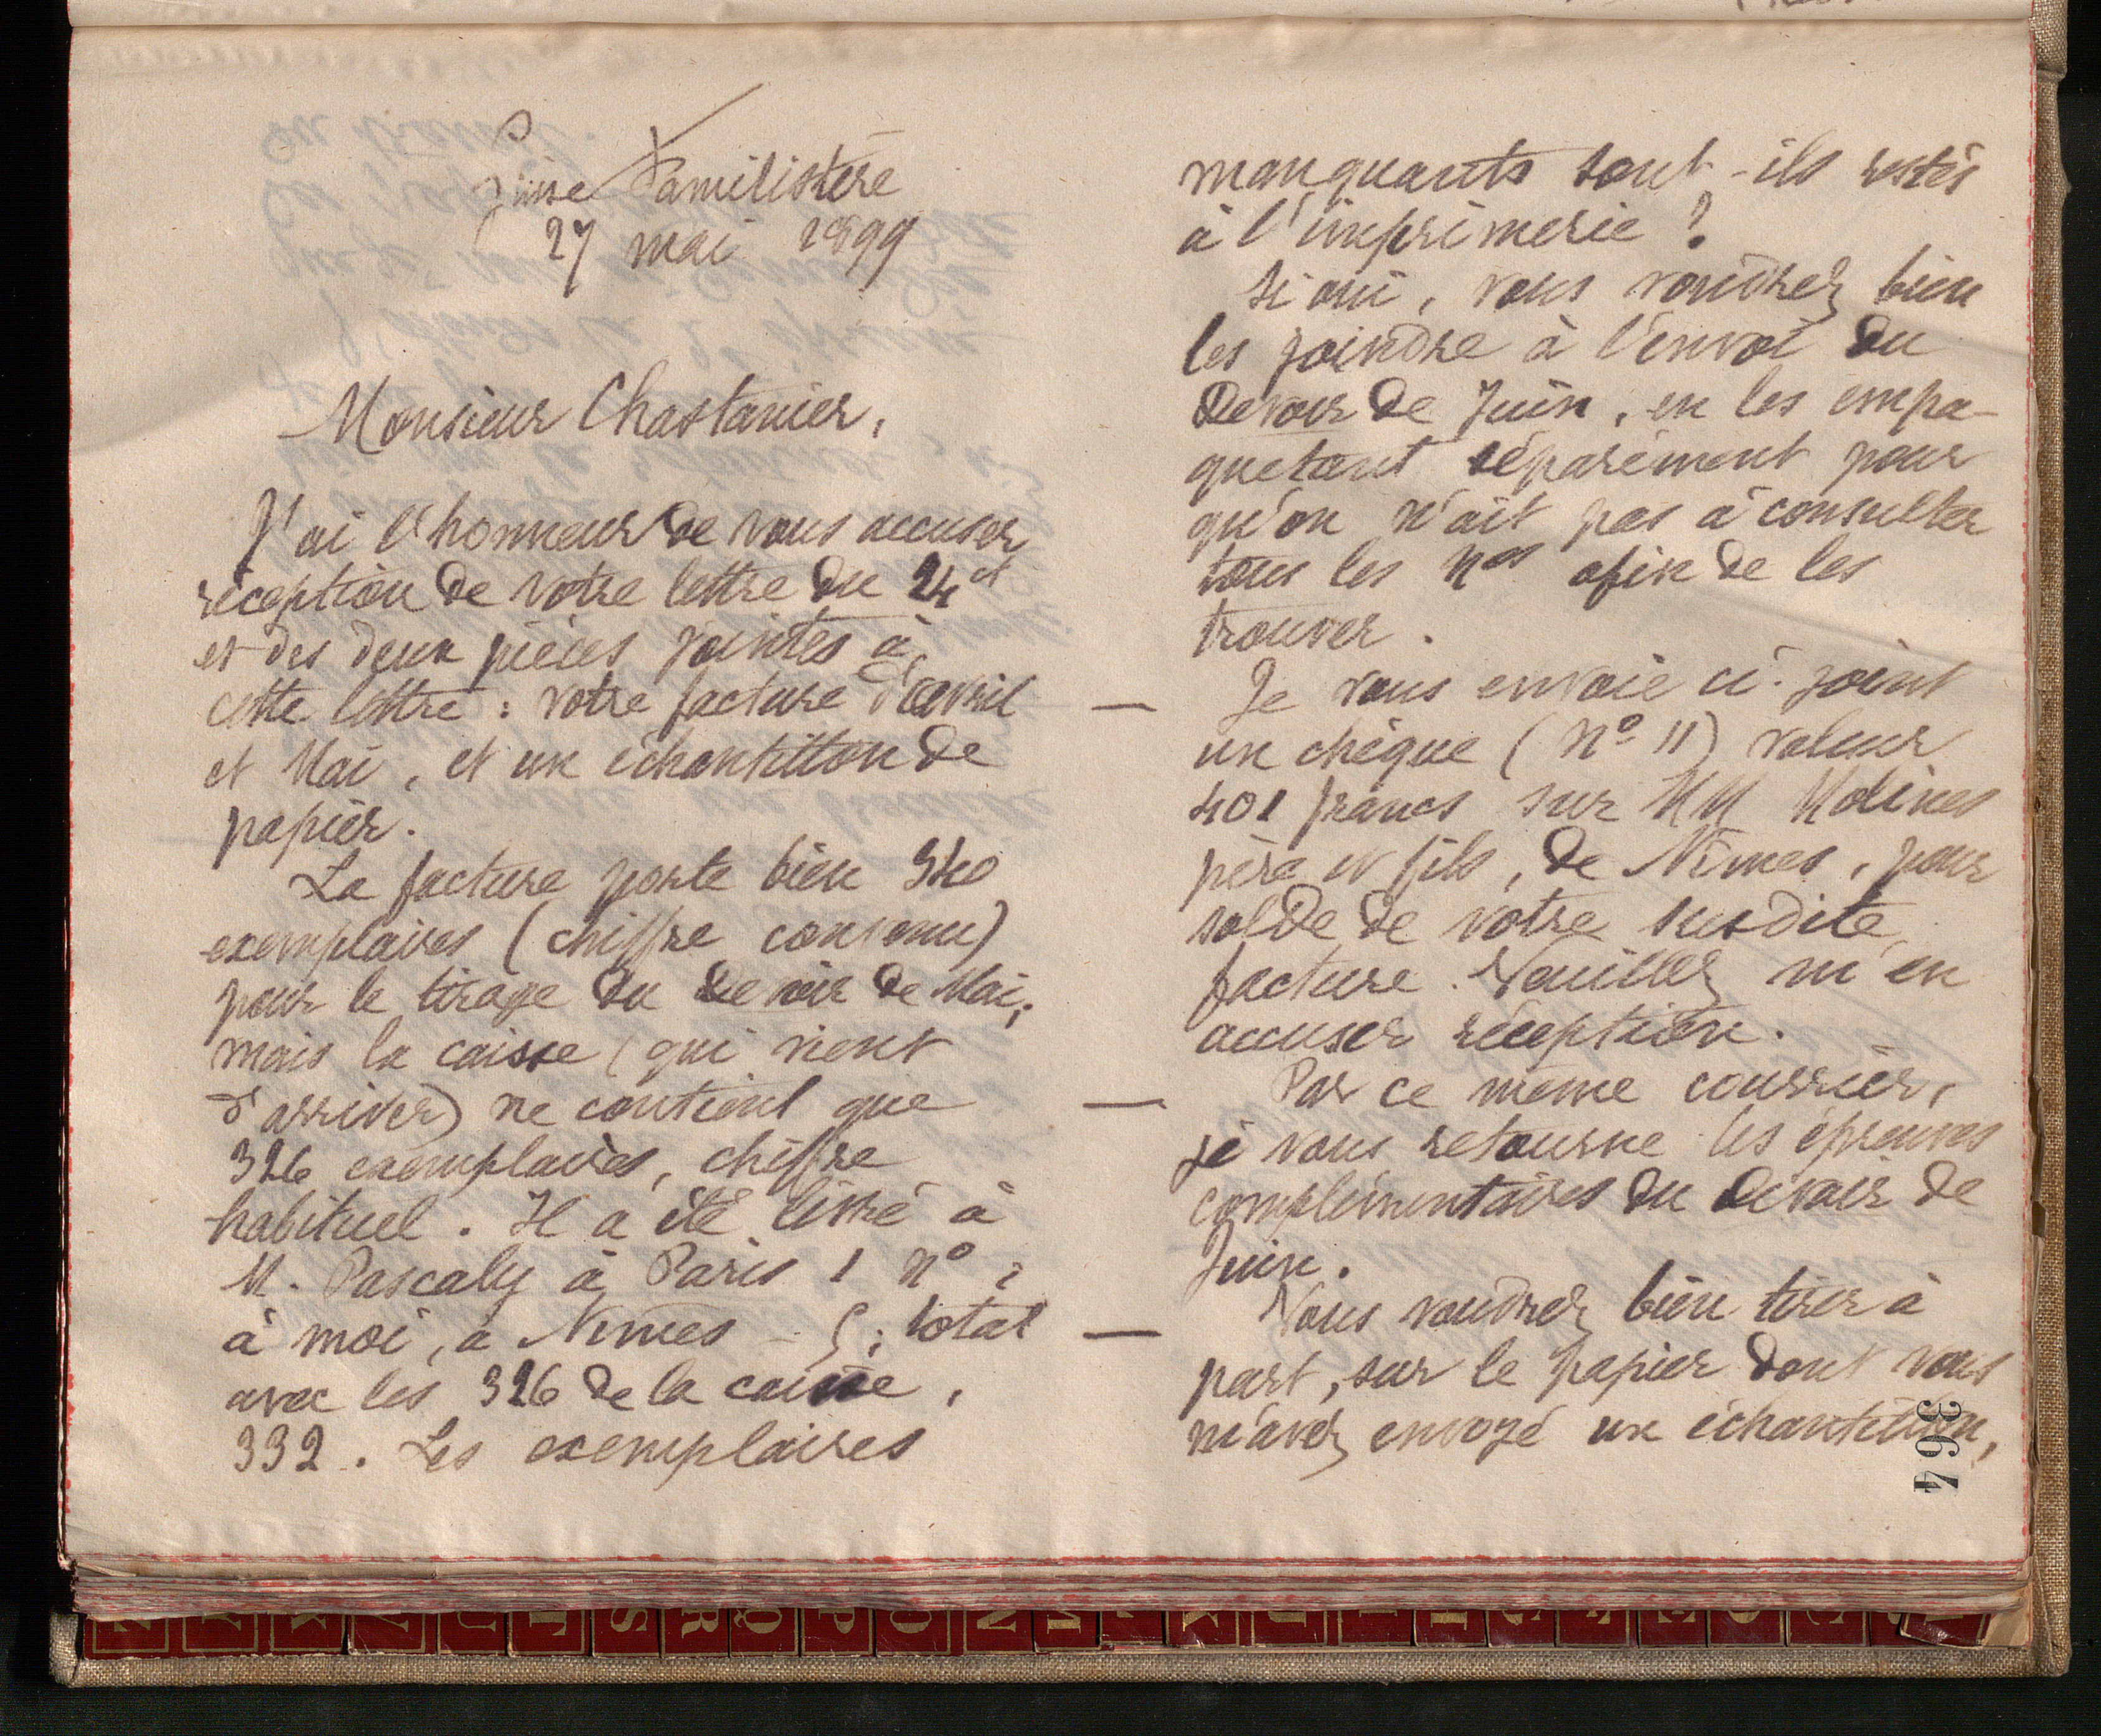 Guise Familistère
27 mai 1899
Monsieur Chastanier,
J'ai l'honneur de vous accuser
réception de votre lettre du 24 ct
et des deux pièces jointes à
cette lettre : votre facture d'avril
et Mai, et un échantillon de
papier.
La facture porte bien 340
exemplaires (chiffre convenu)
pour le tirage du Devoir de Mai;
mais la caisse (qui vient
d'arriver) ne contient que
326 exemplaires, chiffre
habituel. Il a été livré à
M. Pascaly à Paris 1 no ;
à moi, à Nîmes - 5 ; total
avec les 326 de la caisse,
332. Les exemplaires
manquants sont-ils restés
à l'imprimerie ?
Si oui, vous voudrez bien
les joindre à l'envoi du
Devoir de Juin, en les empa-
quetant séparément pour
qu'on n'ait pas à consulter
tous les nos afin de les
trouver.
— Je vous envoie ci-joint
un chèque (No 11) valeur
401 francs sur MM Molines
père et fils, de Nîmes, pour
solde de votre susdite
facture. Veuillez m'en
accuser réception.
— Par ce même courrier,
je vous retourne les épreuves
complémentaires du Devoir de
Juin.
— Vous voudrez bien tirer à
part, sur le papier dont vous
m'avez envoyé un échantillon,
364
Z Y X V U T S R Q P O N M L K J I H G F E D C B A